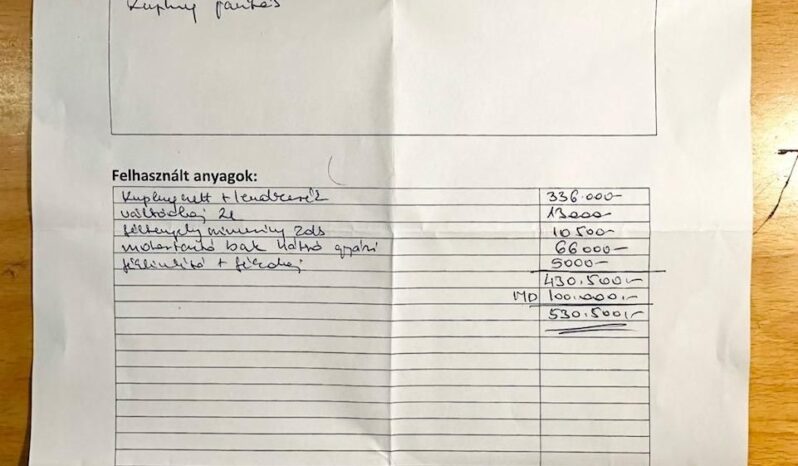 Kuplung javítás
Felhasznált anyagok:
Kuplungszett + lendkerék 336.000-
váltóolaj 2l 13000-
féltengely simmering 2db 10500-
motortartó bak hátsó gyári 66000-
féktisztító + fékolaj 5000-
430.500-
MD 100.000,-
530.500,-